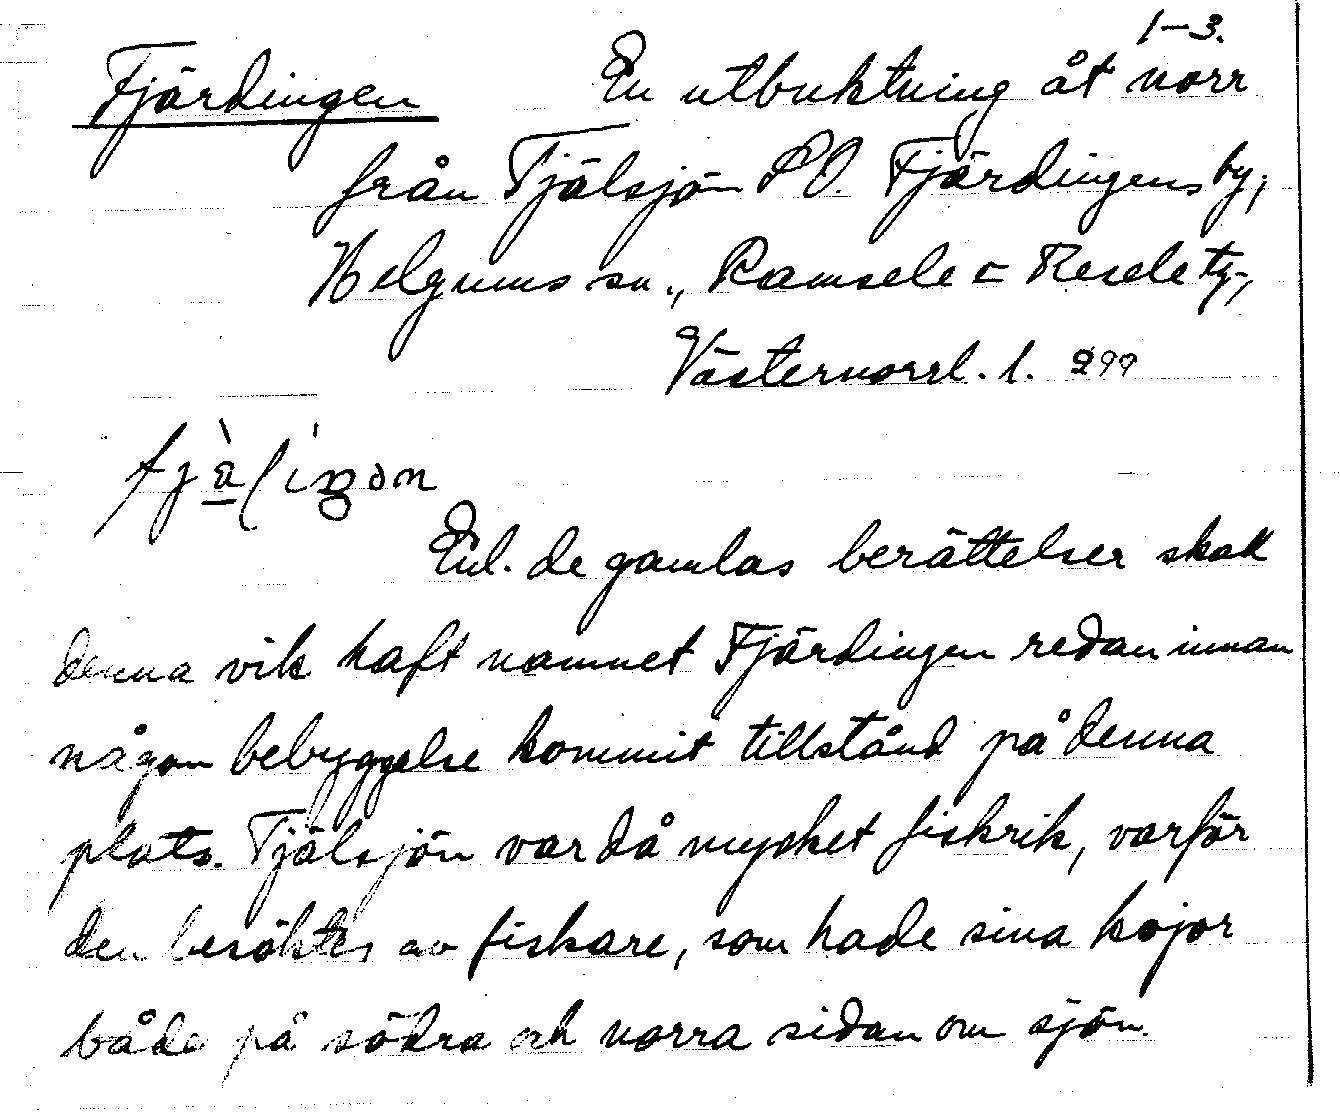 1-3.
Fjärdingen En utbuktning åt norr
från Tjälsjön SO. Fjärdingens by,
Helgums sn., Ramsele o Resele tg.,
Västernorrl. l. 299
Enl. de gamlas berättelser skall
denna vik haft namnet Fjärdingen redan innan
någon bebyggelse kommit tillstånd på denna
plats. Tjälsjön var då mycket fiskrik, varför
den besöktes av fiskare, som hade sina kojor
både på södra och norra sidan om sjön.